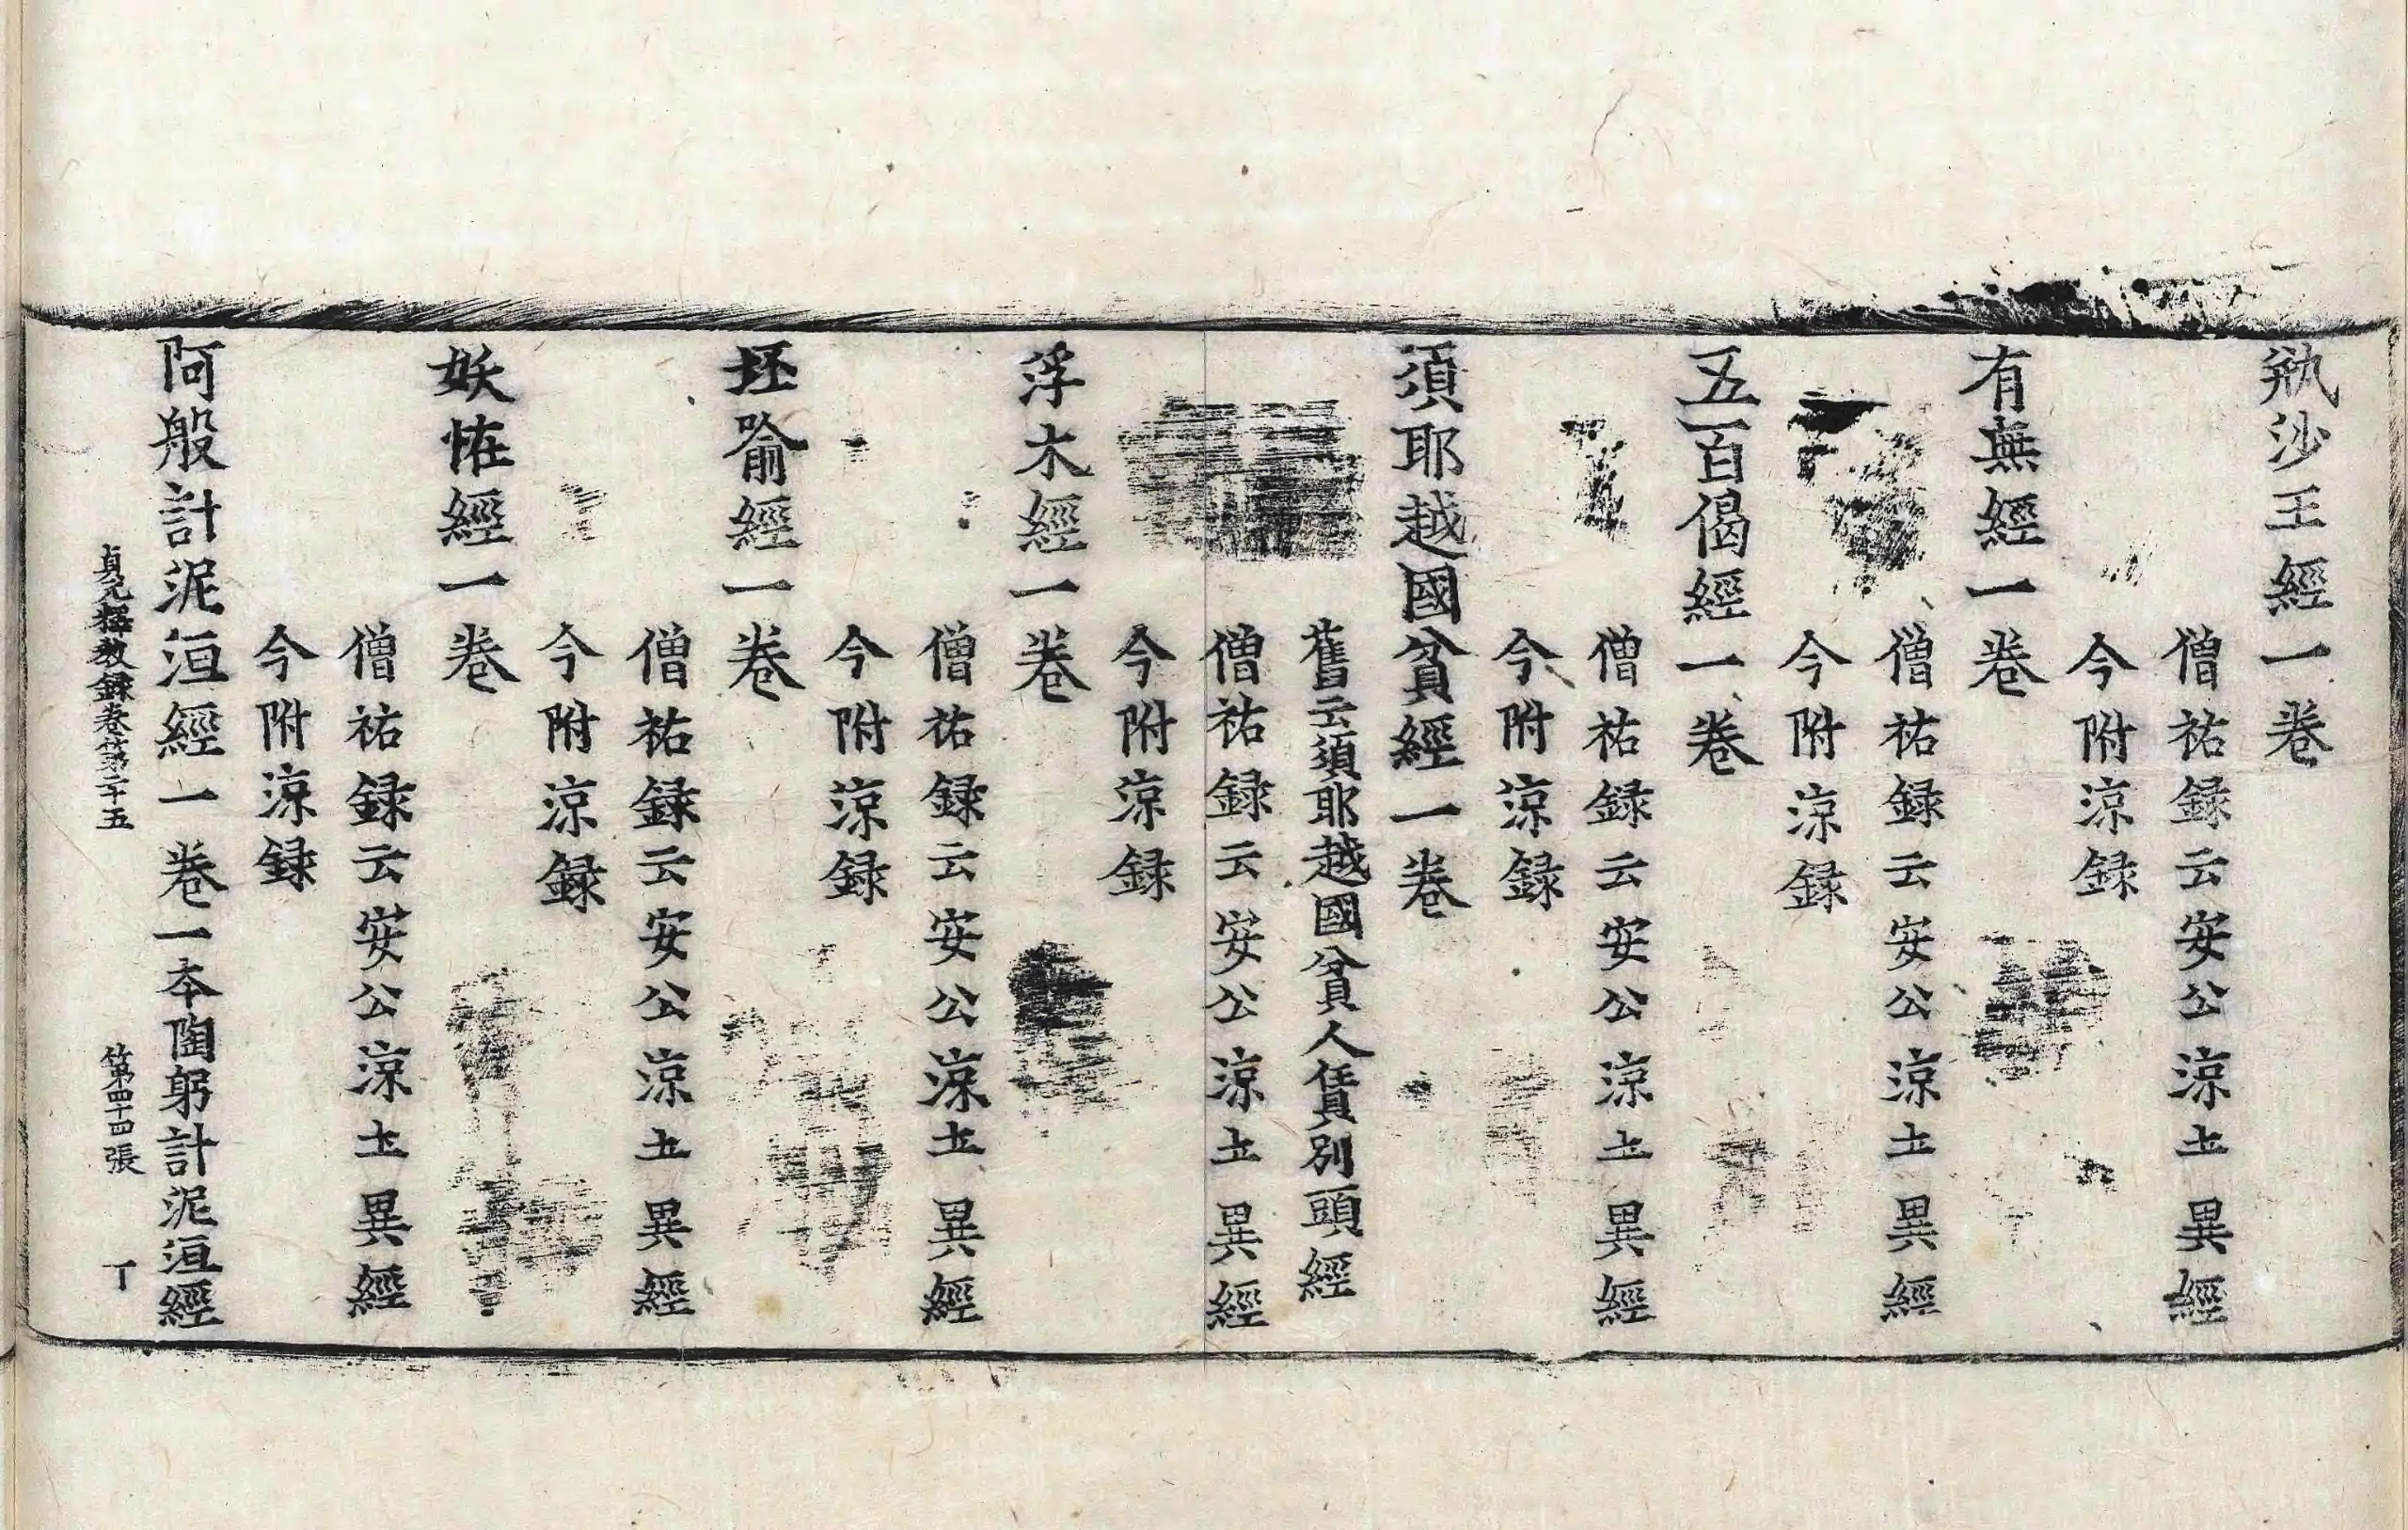 㼛沙王經一卷
僧祐録云安公涼土異經
今附涼録
有無經一卷
僧祐録云安公涼土異經
今附涼録
五百偈經一卷
僧祐録云安公涼土異經
今附涼録
須耶越國貧經一卷
舊云須耶越國貧人賃剔頭經
僧祐録云安公涼土異經
今附涼録
浮木經一卷
僧祐録云安公涼土異經
今附涼録
坯喻經一卷
僧祐録云安公涼土異經
今附涼録
妖恠經一卷
僧祐録云安公涼土異經
今附涼録
阿般計泥洹經一卷一本陶躬計泥洹經
貞元釋教録卷第二十五 第四十四張 丁